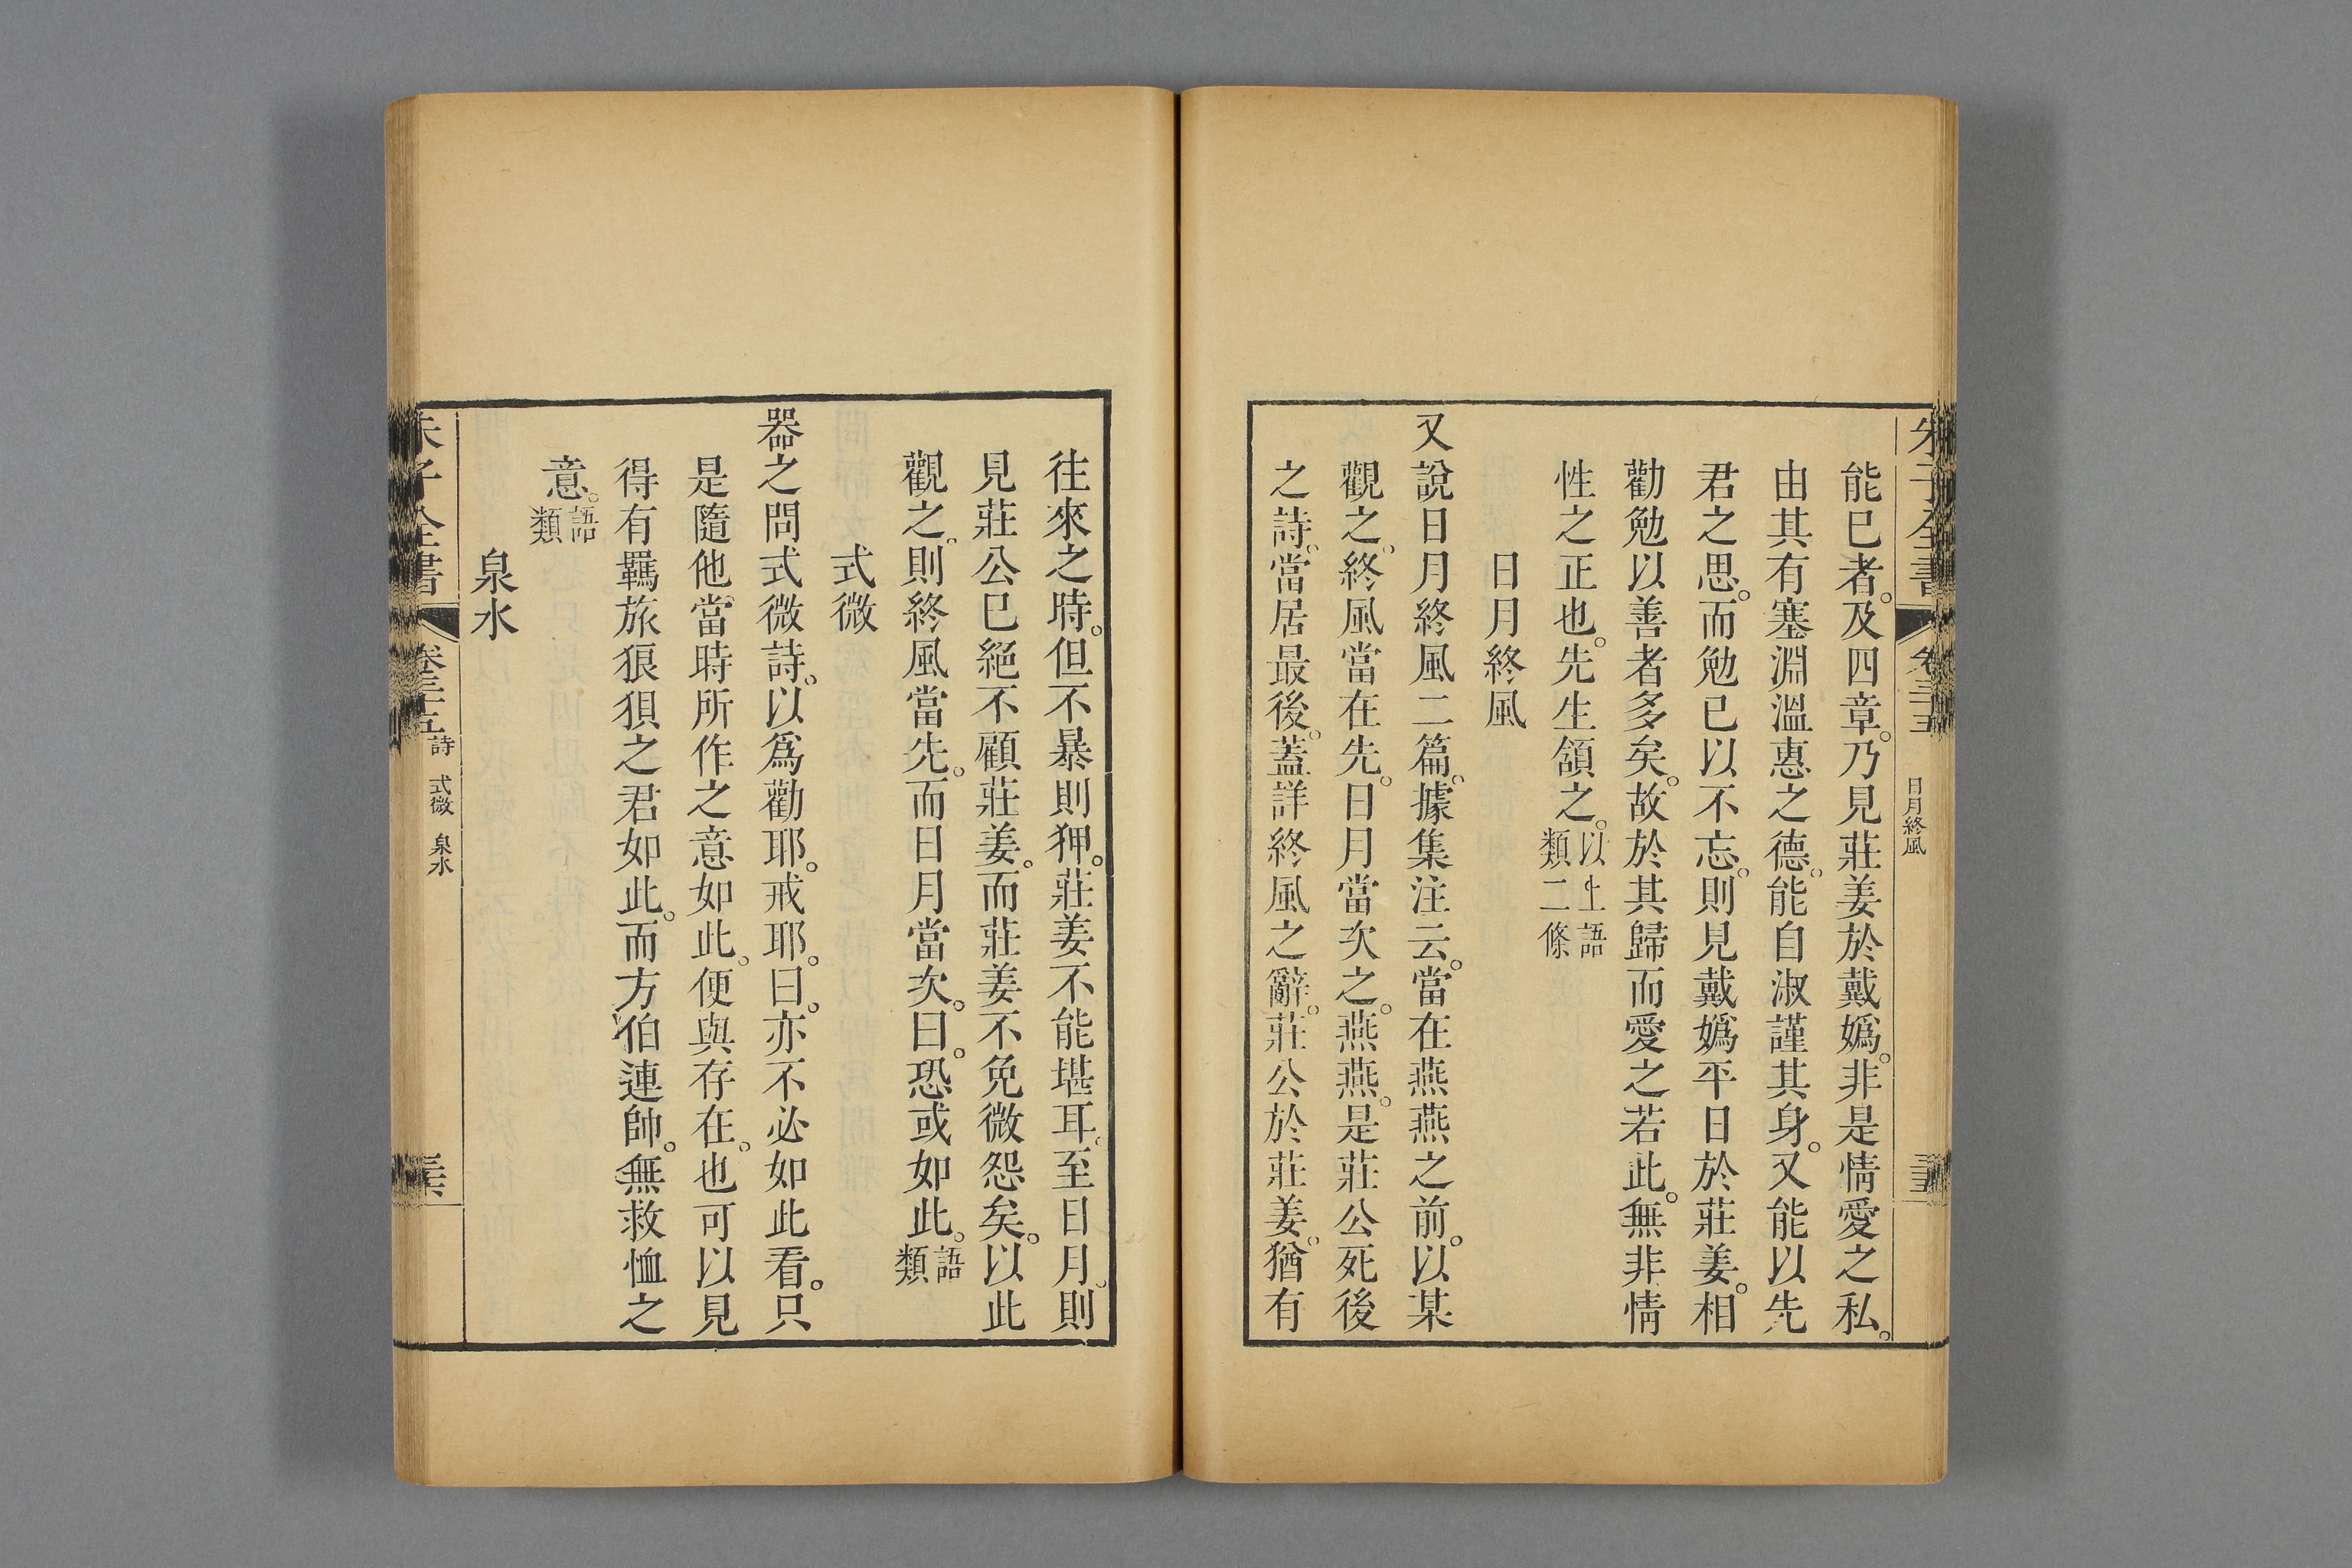 朱子全書 卷三十五 日月終風
能已者。及四章。乃見莊姜於戴嬀。非是情愛之私。
由其有塞淵溫惠之德。能自淑謹其身。又能以先
君之思。而勉已以不忘。則見戴嬀平日於莊姜。相
勸勉以善者多矣。故於其歸而愛之若此。無非情
性之正也。先生頷之。以上語類二條
日月終風
又說日月終風二篇。據集注云。當在燕燕之前。以某
觀之。終風當在先。日月當次之。燕燕。是莊公死後
之詩。當居最後。蓋詳終風之辭。莊公於莊姜。猶有
往來之時。但不暴則狎。莊姜不能堪耳。至日月。則
見莊公已絕不顧莊姜。而莊姜不免微怨矣。以此
觀之。則終風當先。而日月當次。曰。恐或如此。語類
式微
器之問式微詩。以爲勸耶。戒耶。曰。亦不必如此看。只
是隨他當時所作之意如此。便與存在。也可以見
得有羈旅狼狽之君如此。而方伯連帥。無救恤之
意。語類
泉水
朱子全書 卷三十五 詩 式微 泉水